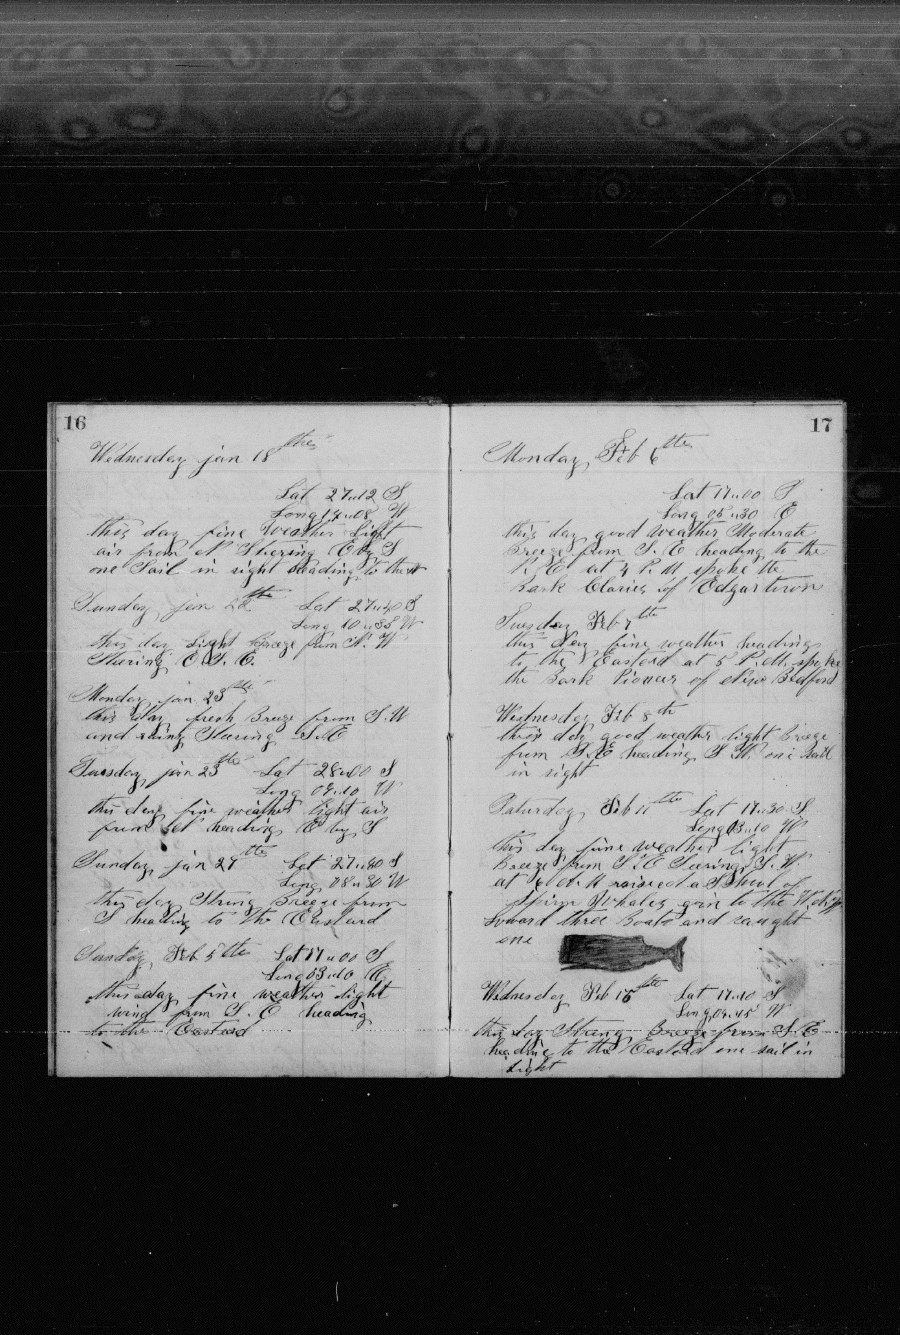 16
Wednesday jan 18th
Lat 27..12 S
Long 14..08 W
this day fine Weather Light
air from N Stearing E by S
one Sail in sight Heading to the
Sunday jan 22th Lat 27..40 S
Long 10..38 W
this day Light Breeze from N. W
Stearing E S. E.
Monday jan 23th
this Day fresh Breeze from S. W
and Stearing S. E
Tuesday jan 25th Lat 28..00 S
Long 09..10 W
this day fine weather light air
from heading E by S
Sunday jan 29th Lat 27..40 S
Long 08..30 W
this day Strong Breeze from
S heading to the Eastard
Sunday Feb 5th Lat 17..00 S
Long 03..10 E
this day fine weather light
wind from S. E heading
to the Eastard
17
Monday Feb 6th
Lat 17..00 S
Long 05..30 E
this day good weather Moderate
Breeze from S. E heading to the
E at 4 P. M spoke the
Bark Clarice of Edgartown
Tuesday Feb 7th
this Day fine weather heading
to the Eastard at 5 P. M. spoke
the Bark Pioneer of New Bedford
Wednesday Feb 8th
this day good weather light Breeze
from S. E heading S W. one Sail
in sight
Saturday Feb 11th Lat 17..30 S
Long 03..10 W
this day fine weather light
Breeze from S. E Stearing S. W
at 6 A. M raised a Shoal of
Spirm Whales goin to the
loward three Boats and caught
one
Wednesday Feb 15th Lat 17..10 S
Long 04..45 W
this day Strong Breeze from S. E
heading to the Eastard one sail in
sight